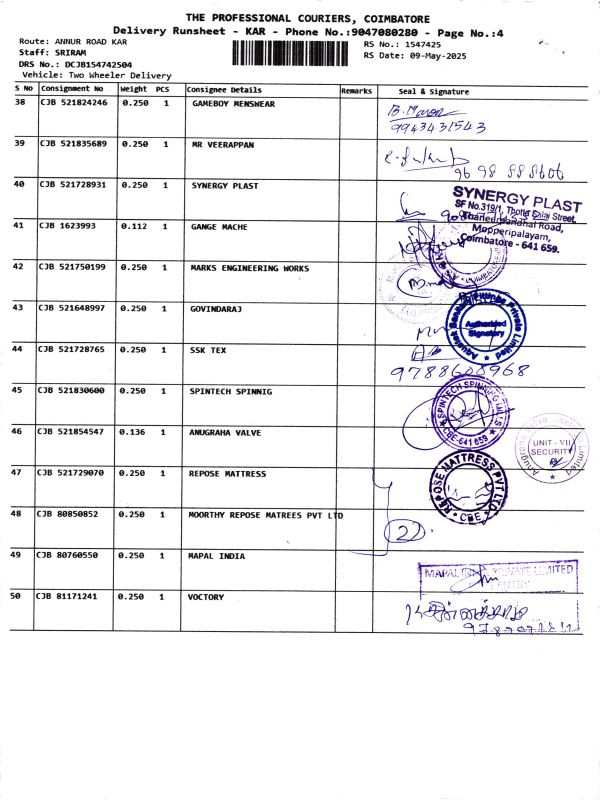 THE PROFESSIONAL COURIERS, COIMBATORE
Delivery Runsheet - KAR - Phone No.:9047080280 - Page No.:4
Route: ANNUR ROAD KAR
RS No.: 1547425
Staff: SRIRAM
RS Date: 09-May-2025
DRS No.: DCJB154742504
Vehicle: Two Wheeler Delivery
S No Consignment No Weight PCS Consignee Details Remarks Seal & Signature
38 CJB 521824246 0.250 1 GAMEBOY MENSWEAR
9943431543
39 CJB 521835689 0.250 1 MR VEERAPPAN
96 98 888606
40 CJB 521728931 0.250 1 SYNERGY PLAST
SYNERGY PLAST
SF No.319/1, Thottip Salai Street,
Mopperipalayam,
Coimbatore - 641 659.
41 CJB 1623993 0.112 1 GANGE MACHE
42 CJB 521750199 0.250 1 MARKS ENGINEERING WORKS
43 CJB 521648997 0.250 1 GOVINDARAJ
Private Limited
Authorised
Signatory
44 CJB 521728765 0.250 1 SSK TEX
9788608968
45 CJB 521830600 0.250 1 SPINTECH SPINNIG
SPINTECH SPINNING MILLS
CBE-641 659
46 CJB 521854547 0.136 1 ANUGRAHA VALVE
UNIT - VII
SECURITY
47 CJB 521729070 0.250 1 REPOSE MATTRESS
REPOSE MATTRESS PVT LTD
CBE
48 CJB 80850852 0.250 1 MOORTHY REPOSE MATREES PVT LTD
2
49 CJB 80760550 0.250 1 MAPAL INDIA
MAPAL PRIVATE LIMITED
50 CJB 81171241 0.250 1 VOCTORY